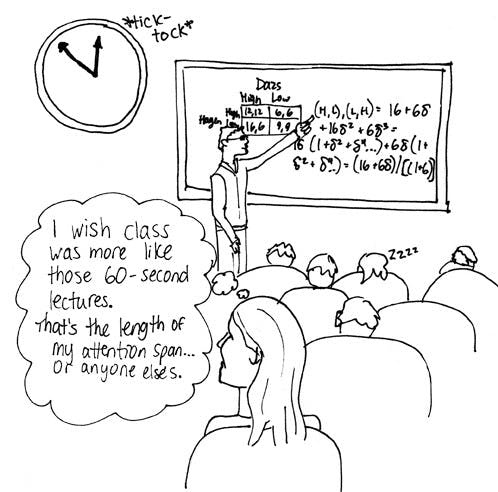 *tick-
tock*
Dazs
High Low
Hagen High 12,12 6,6
Low 16,6 9,9
(H,L),(L,H) = 16+6δ
+16δ²+6δ³=
16 (1+δ²+δ⁴...)+6δ(1+
δ²+δ⁴..)=(16+6δ)/[(1+δ]
zzzz
I wish class
was more like
those 60-second
lectures.
That's the length of
my attention span...
Or anyone elses.